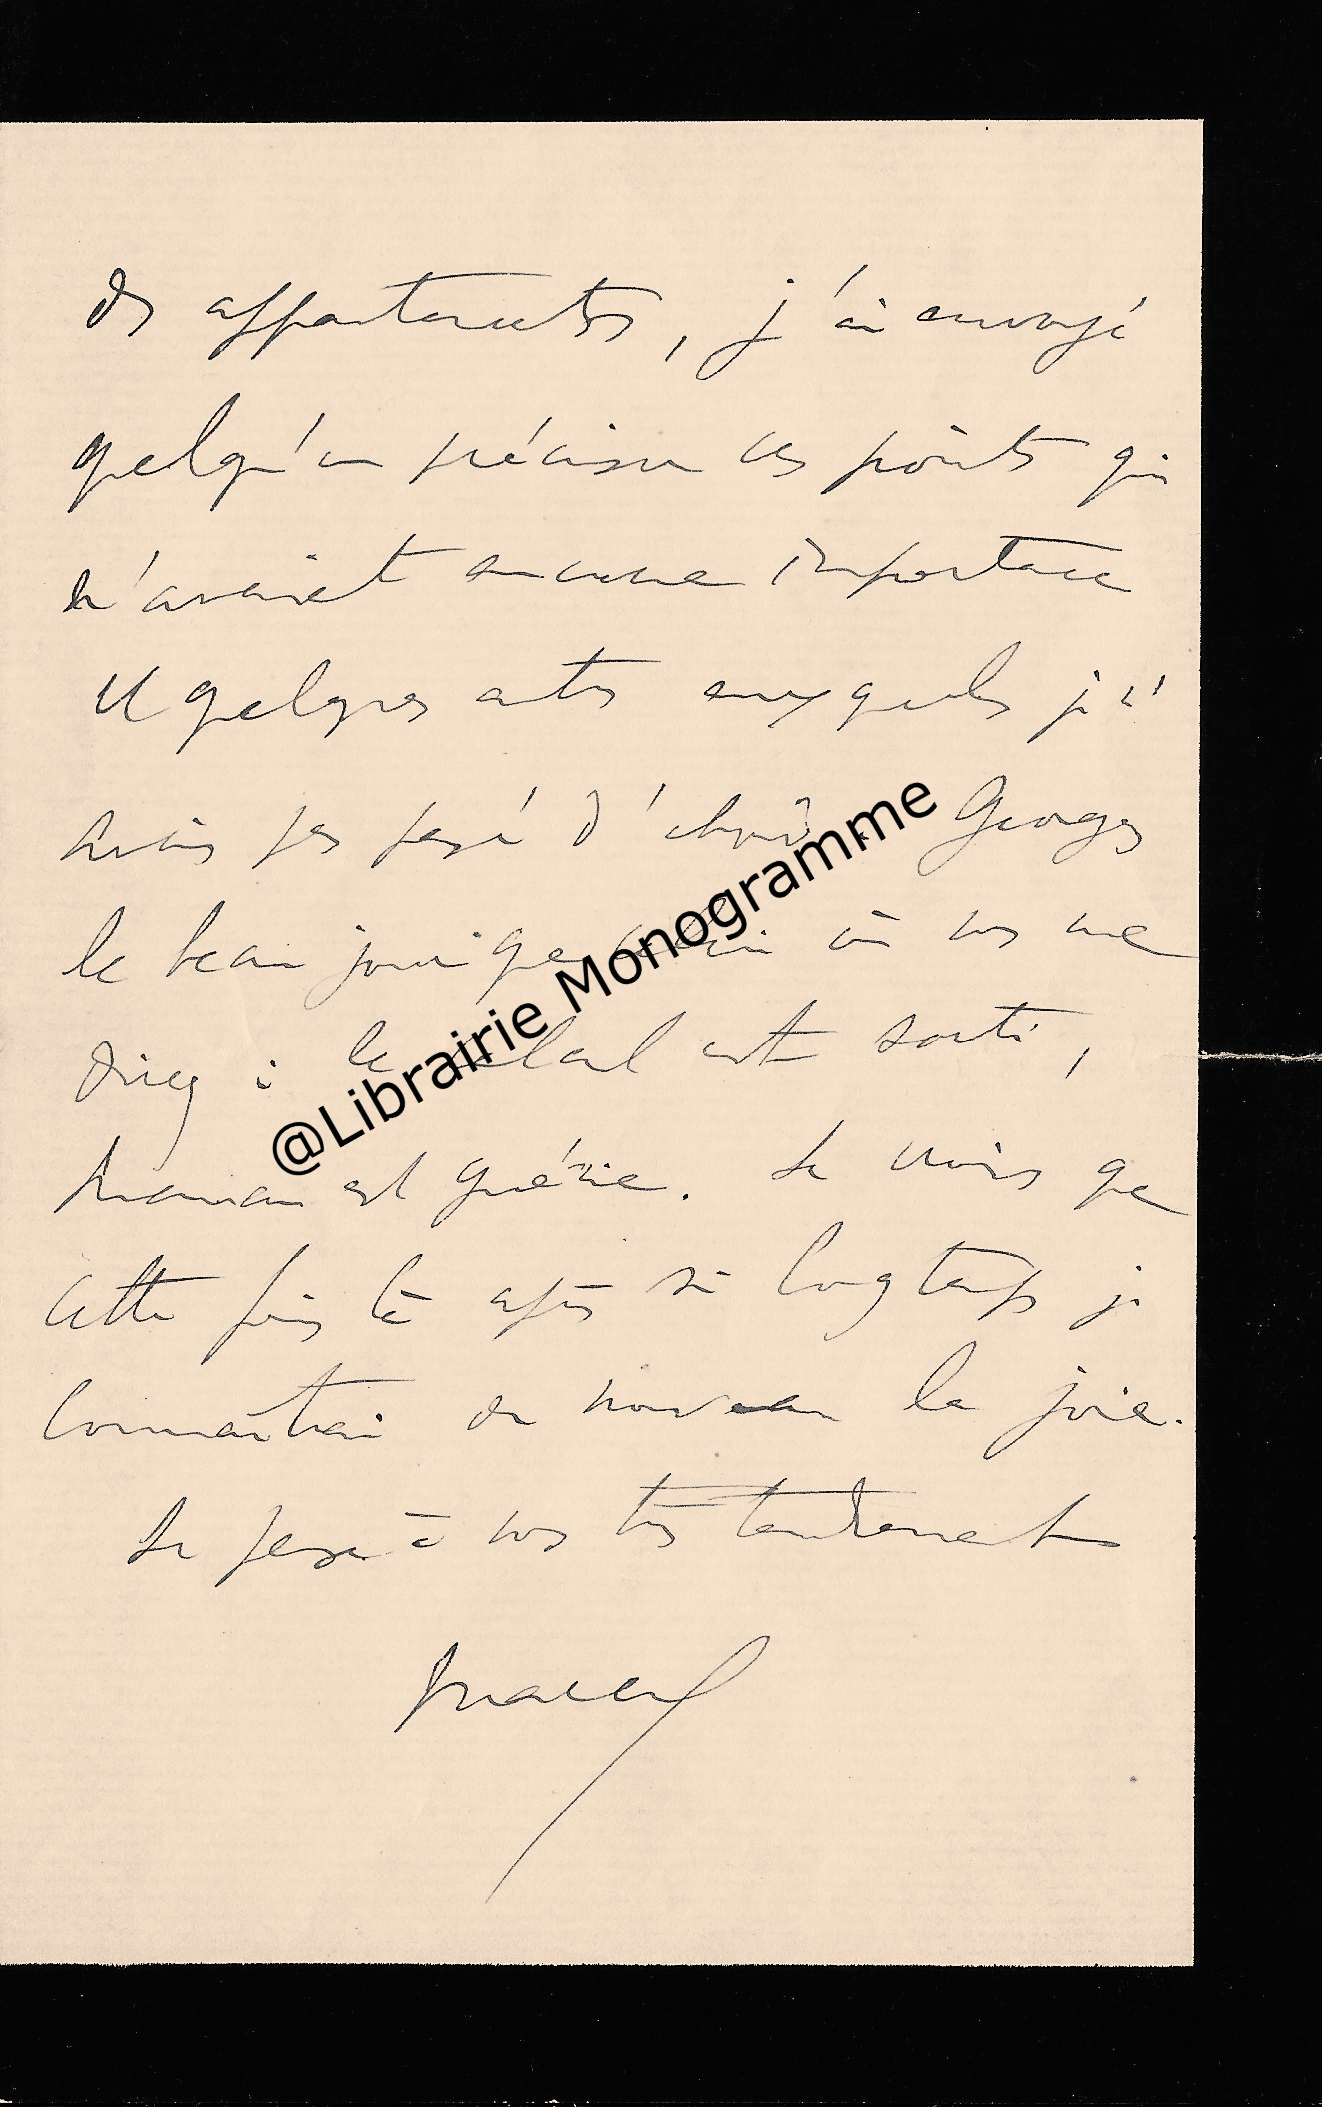 des appartements, j'ai envoyé
quelqu'un préciser ces points qui
n'avaient aucune importance
et quelques autres auxquels je n'
avais pas pensé d'abord. Georges
le beau jour que celui où vous me
direz : le calcul est sorti,
Maman est guérie. Je crois que
cette fois là après si longtemps je
connaîtrai de nouveau la joie.
Je pense à vous très tendrement
Marcel
@Librairie Monogramme